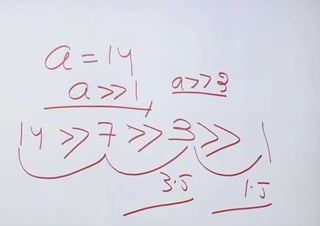 a = 14
a >> 1 a >> 3
14 >> 7 >> 3 >> 1
3.5 1.5